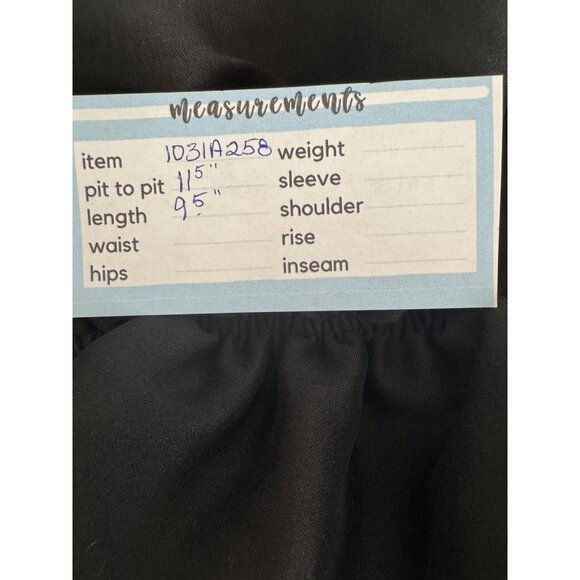 measurements
item 1031A258 weight
pit to pit 11.5" sleeve
length 9.5" shoulder
waist rise
hips inseam